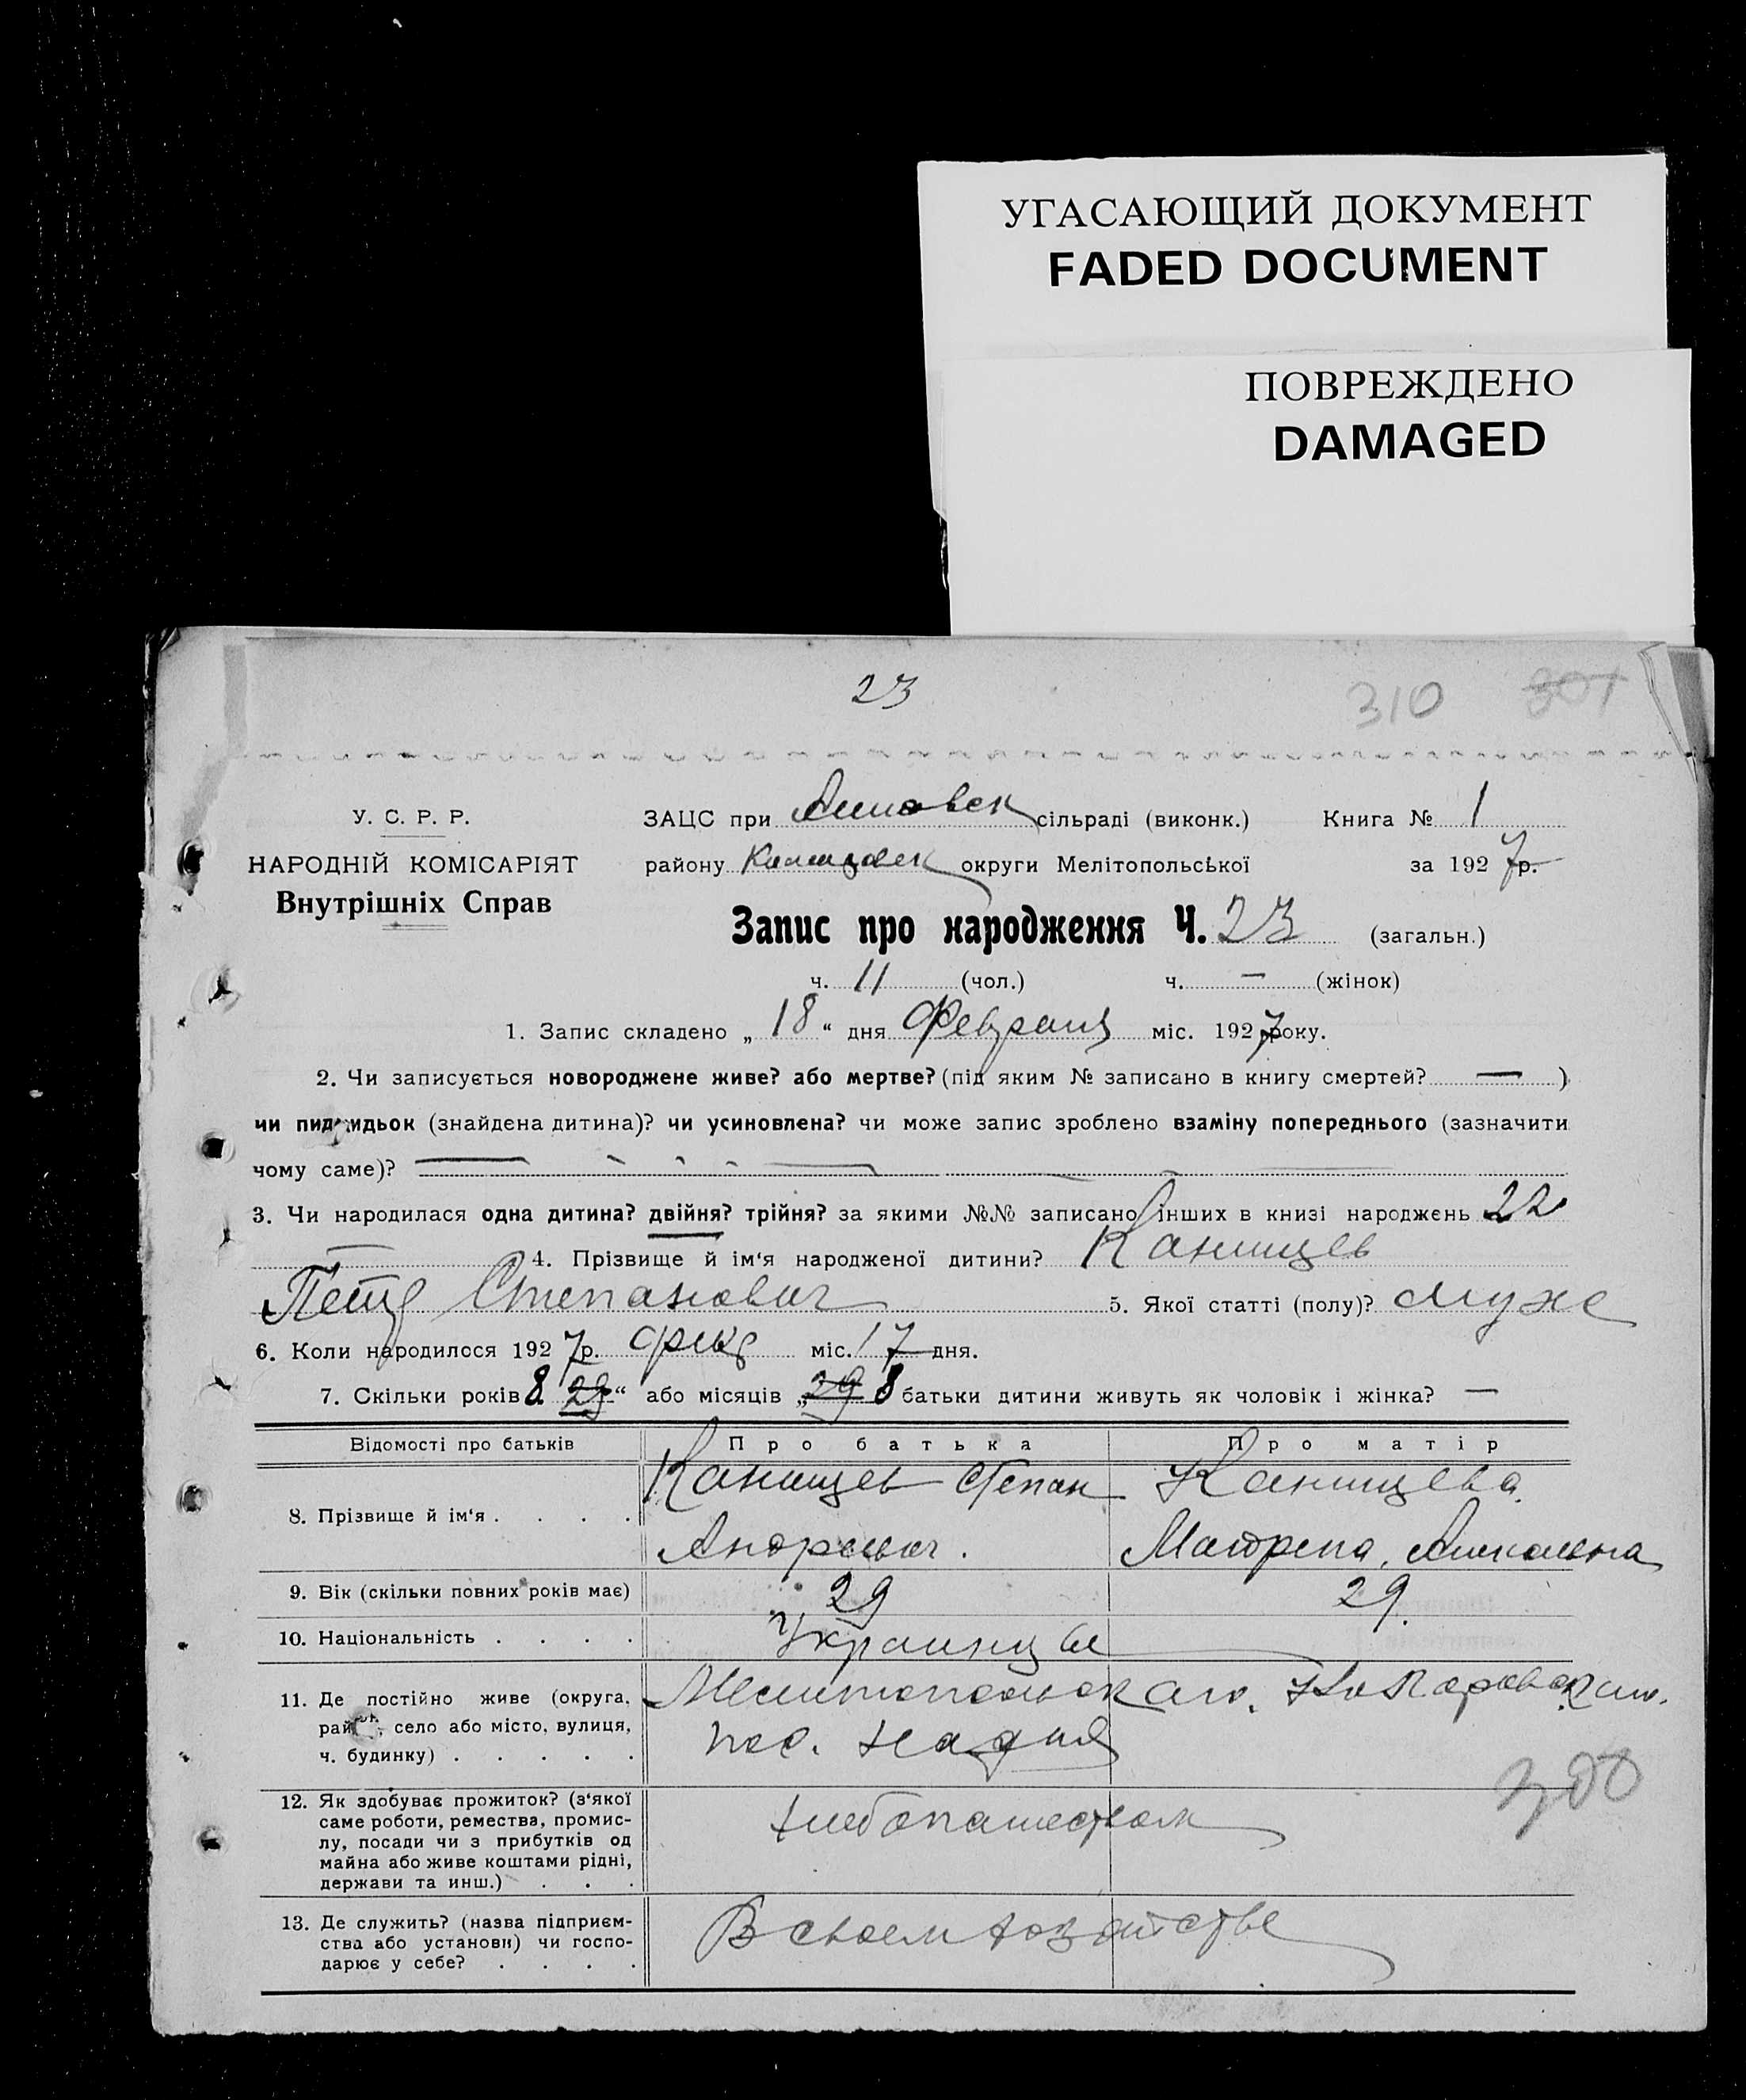 УГАСАЮЩИЙ ДОКУМЕНТ
FADED DOCUMENT
ПОВРЕЖДЕНО
DAMAGED
23 310 301
У. С. Р. Р.
НАРОДНІЙ КОМІСАРІЯТ
Внутрішніх Справ
ЗАЦС при сільраді (виконк.) Книга № 1
району округи Мелітопольської за 1927 р.
Запис про народження Ч. 23 (загальн.)
ч. 11 (чол.) ч. — (жінок)
1. Запис складено „ 18 “ дня Февраля міс. 1927 року.
2. Чи записується новороджене живе? або мертве? (під яким № записано в книгу смертей? — )
чи пид идьок (знайдена дитина)? чи усиновлена? чи може запис зроблено взаміну попереднього (зазначити
чому саме)?
3. Чи народилася одна дитина? двійня? трійня? за якими №№ записано інших в книзі народжень 22
4. Прізвище й ім‘я народженої дитини? Канищев
Петр Степанович 5. Якої статті (полу)? муже
6. Коли народилося 1927 р. февр міс. 17 дня.
7. Скільки років 8 29 “ або місяців „ 29 8 батьки дитини живуть як чоловік і жінка? —
Відомості про батьків Про батька Про матір
8. Прізвище й ім‘я . . . . Канищев Степан Канищева
Андреевич. Матрена,
9. Вік (скільки повних років має) 29 29.
10. Національність . . . . Украинцы
11. Де постійно живе (округа,
рай , село або місто, вулиця,
ч. будинку) . . . . .
Мелитопольск
пос. Надия
12. Як здобуває прожиток? (з‘якої
саме роботи, ремества, промис-
лу, посади чи з прибутків од
майна або живе коштами рідні,
держави та инш.) . . .
хлебопашеством
300
13. Де служить? (назва підприєм-
ства або установи) чи госпо-
дарює у себе? . . . .
В своем хозяйстве